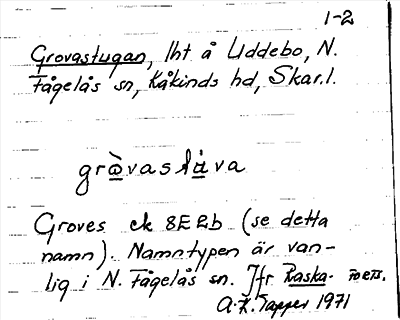 1-2
Grovastugan, lht å Uddebo, N.
Fågelås sn, Kåkinds hd, Skar.l.
Groves ek 8E2b (se detta
namn). Namntypen är van-
lig i N. Fågelås sn. Jfr Raska-
A.K. Tapper 1971